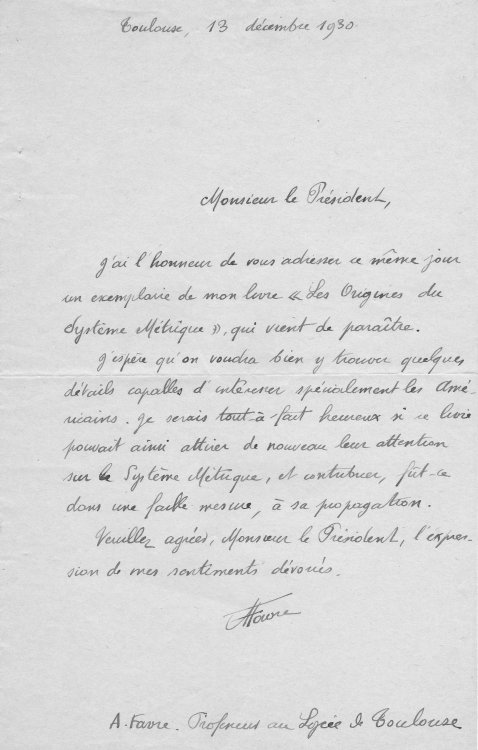 Toulouse, 13 décembre 1930
Monsieur le Président,
J'ai l'honneur de vous adresser ce même jour
un exemplaire de mon livre « Les Origines du
Système Métrique », qui vient de paraître.
J'espère qu'on voudra bien y trouver quelques
détails capables d'intéresser spécialement les Amé-
ricains. Je serais tout-à-fait heureux si ce livre
pouvait ainsi attirer de nouveau leur attention
sur le Système Métrique, et contribuer, fût-ce
dans une faible mesure, à sa propagation.
Veuillez agréer, Monsieur le Président, l'expres-
sion de mes sentiments dévoués.
AFavre
A. Favre. Professeur au Lycée de Toulouse